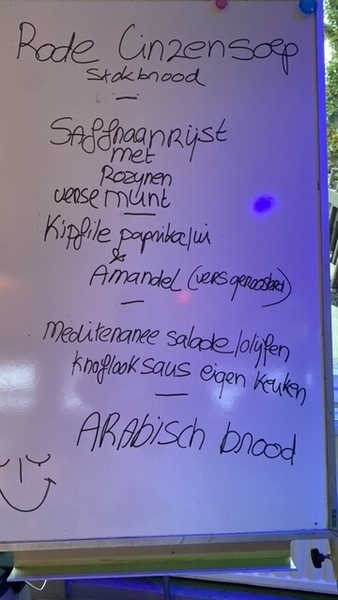 Rode Linzensoep
stokbrood
Saffraanrijst
met
Rozynen
verse munt
Kipfile paprika/ui
&
Amandel (vers geroosterd)
Mediteranee salade/olijfen
knoflook saus eigen keuken
ARAbisch brood